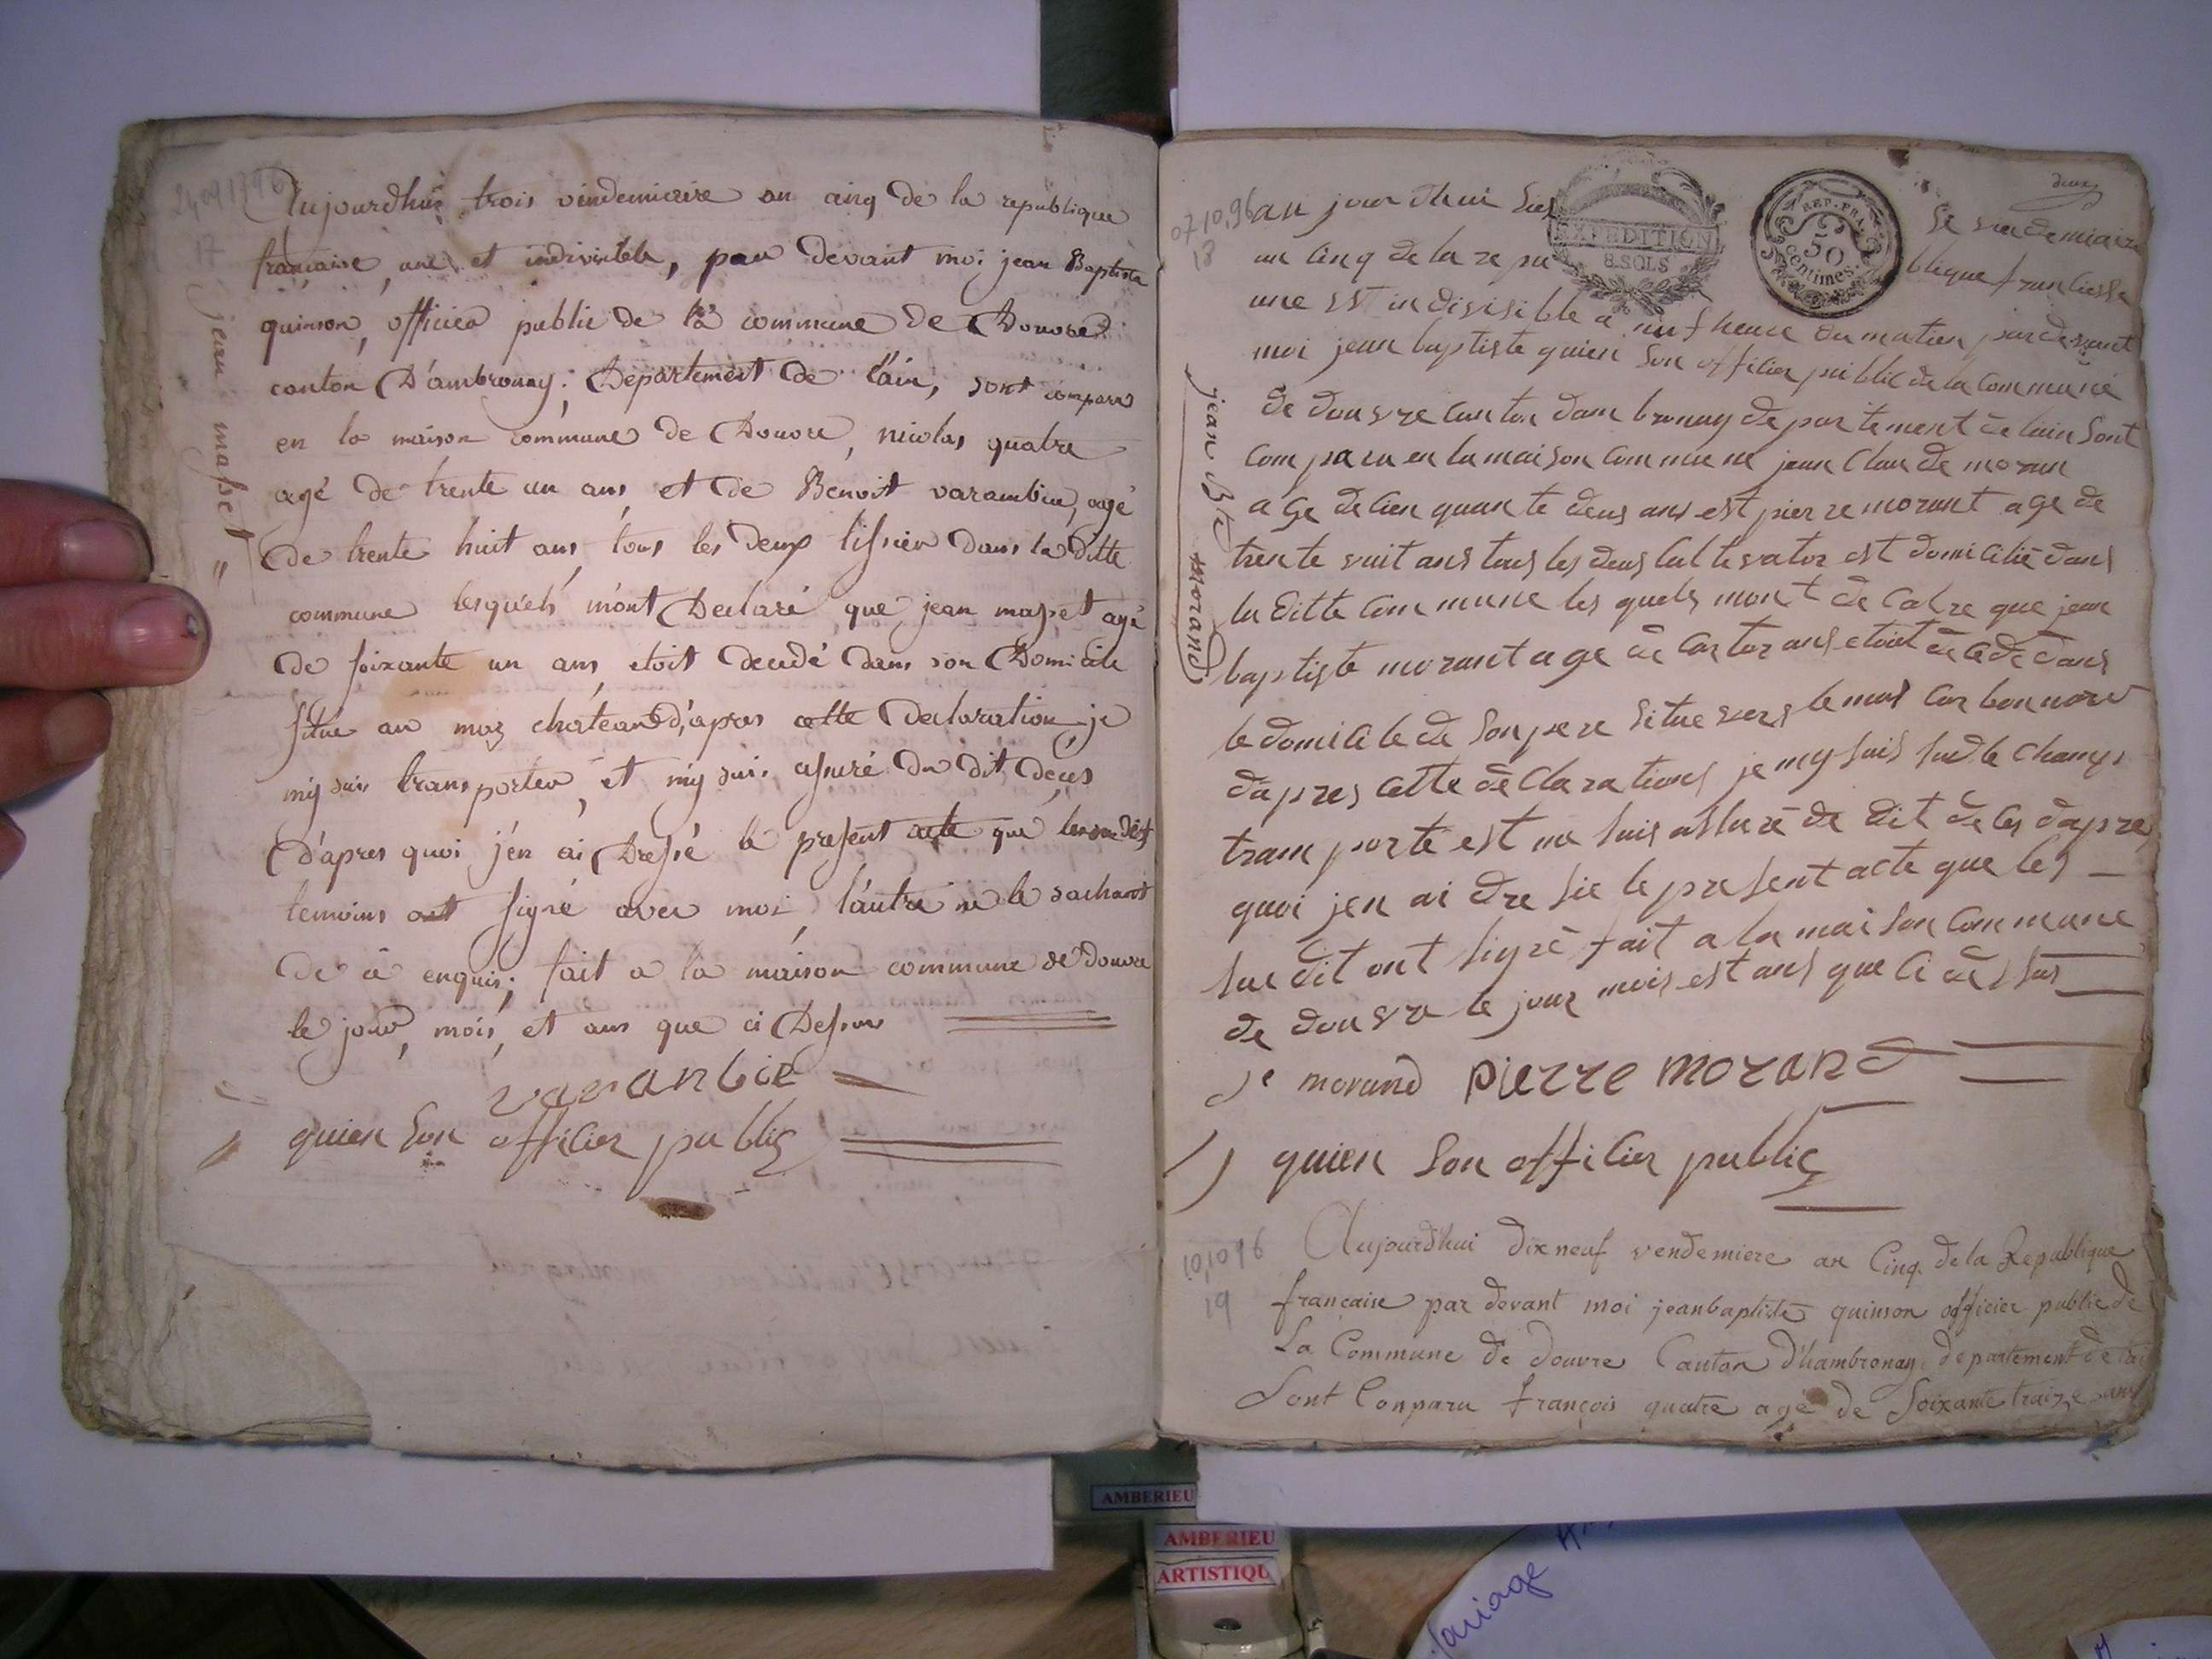 24,09 1796
17
jean masset
Aujourdhui trois vindemiaire an cinq de la republique
francaise, une et indivisible, par devant moi jean Baptiste
quinson, officier public de la commune de Douvre
canton D'ambronay, Departement de l'ain, sont comparu
en la maison commune de Douvre, nicolas quatre
agé de trente un ans, et de Benoit varambier, agé
de trente huit ans, tous les deux tissier dans la ditte
commune lesquels m'ont Declaré que jean masset agé
de soixante un ans, etoit decedé dans son Domicile
situé au maz chateau, d'apres cette Declaration, je
m'y suis transporter, et m'y suis assuré du dit deces
d'apres quoi j'en ai Dressé le present acte que
temoins ont signé avec moi, l'autre ne le sachant
de ce enquis; fait a la maison commune de douvre
le jour, mois, et ans que ci Dessus
varanbié
quien son officier public
deux
EXPEDITION
8.SOLS
REP. FRA.
50
centimes.
07,10,96
18
jean Bte morand
au jour dhui se vindemiaire
an cinq de la re pu blique francaisse
une est indivisible a neuf heure du matien par devant
moi jean baptiste quien son officier public de la commune
de douvre canton dambronay departement de lain sont
comparu en la maison commune jean claude moran
age de cien quante deus ans est pierre morant age de
trente vuit ans tous les deus cultivator est domicilié dans
la ditte commune les quels mont de calre que jean
baptiste morant age de cator ans etoit decede dans
le domicile de son pere situe vers le mas carbonnord
dapres cette declarations je my suis sur le champs
trans porté est me suis assuré de dit deces dapre
quoi jen ai dressé le present acte que les
sue dit ont signé fait a la maison commune
de douvre le jour mois est ans que ci dessus
jc morand pierre morand
quien son officier public
10,10,96
19
Aujourd'hui dix neuf vendemiere an Cinq de la Republique
francaise par devant moi jeanbaptiste quinson officier public de
La Commune de douvre Canton d'hambronay departement de l'ai
Sont Conparu françois quatre agé de Soixante traize ans
AMBERIEU
AMBERIEU
ARTISTIQU
mariage